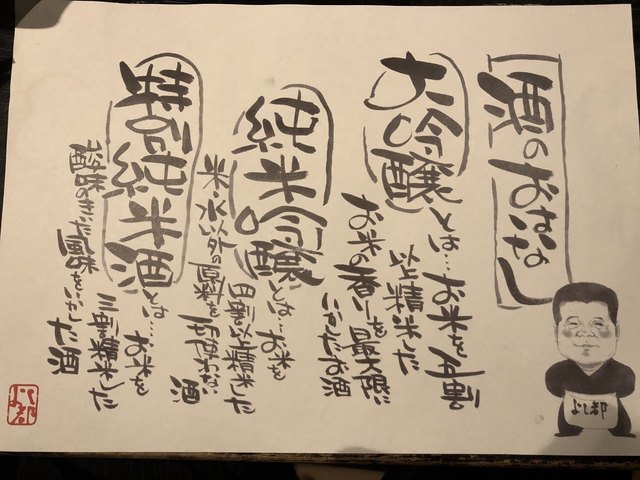 酒のおはなし
大吟醸とは…お米を五割
以上精米した
お米の香りを最大限に
いかしたお酒
純米吟醸とは…お米を
四割以上精米した
米・水以外の原料を一切使わない
酒
特別純米酒とは…お米を
三割精米した
酸味のきいた風味をいかし
た酒
よし都
よし都